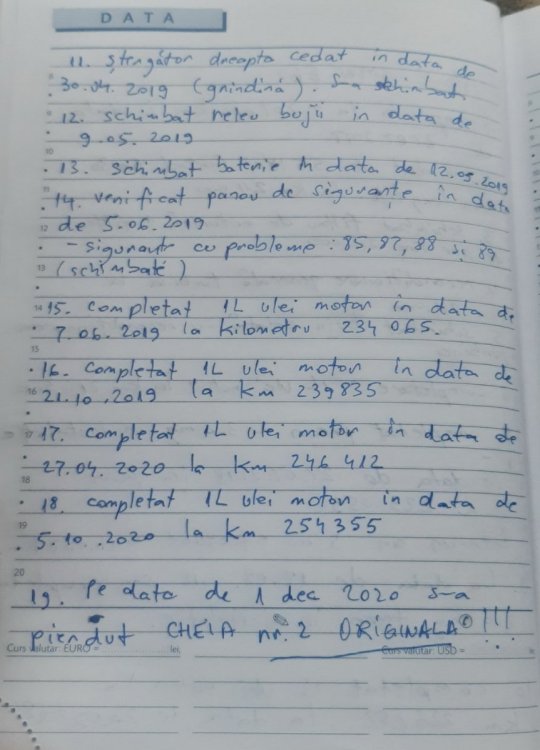 DATA
11. ștergător dreapta cedat în data de
30.04.2019 (grindină). S-a schimbat
12. schimbat releu bujii in data de
9.05.2019
13. schimbat baterie în data de 12.05.2019
14. verificat panou de siguranțe în data
de 5.06.2019
- sigurante cu probleme: 85, 87, 88 și 89
(schimbate)
15. completat 1L ulei motor in data de
7.06.2019 la kilometru 234065.
16. completat 1L ulei motor in data de
21.10.2019 la km 239835
17. completat 1L ulei motor în data de
27.04.2020 la km 246412
18. completat 1L ulei motor in data de
5.10.2020 la km 254355
19. Pe data de 1 dec 2020 s-a
pierdut CHEIA nr. 2 ORIGINALA !!!
Curs valutar: EURO = lei, Curs valutar: USD =